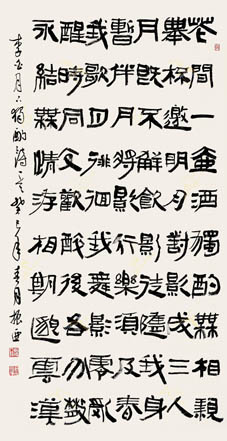 花間一壺酒獨酌無相親
舉杯邀明月對影成三人
月既不解飲影徒隨我身
暫伴月將影行樂須及春
我歌月徘徊我舞影零亂
醒時同交歡醉後各分散
永結無情遊相期邈雲漢
李白月下獨酌詩一首癸巳年春月